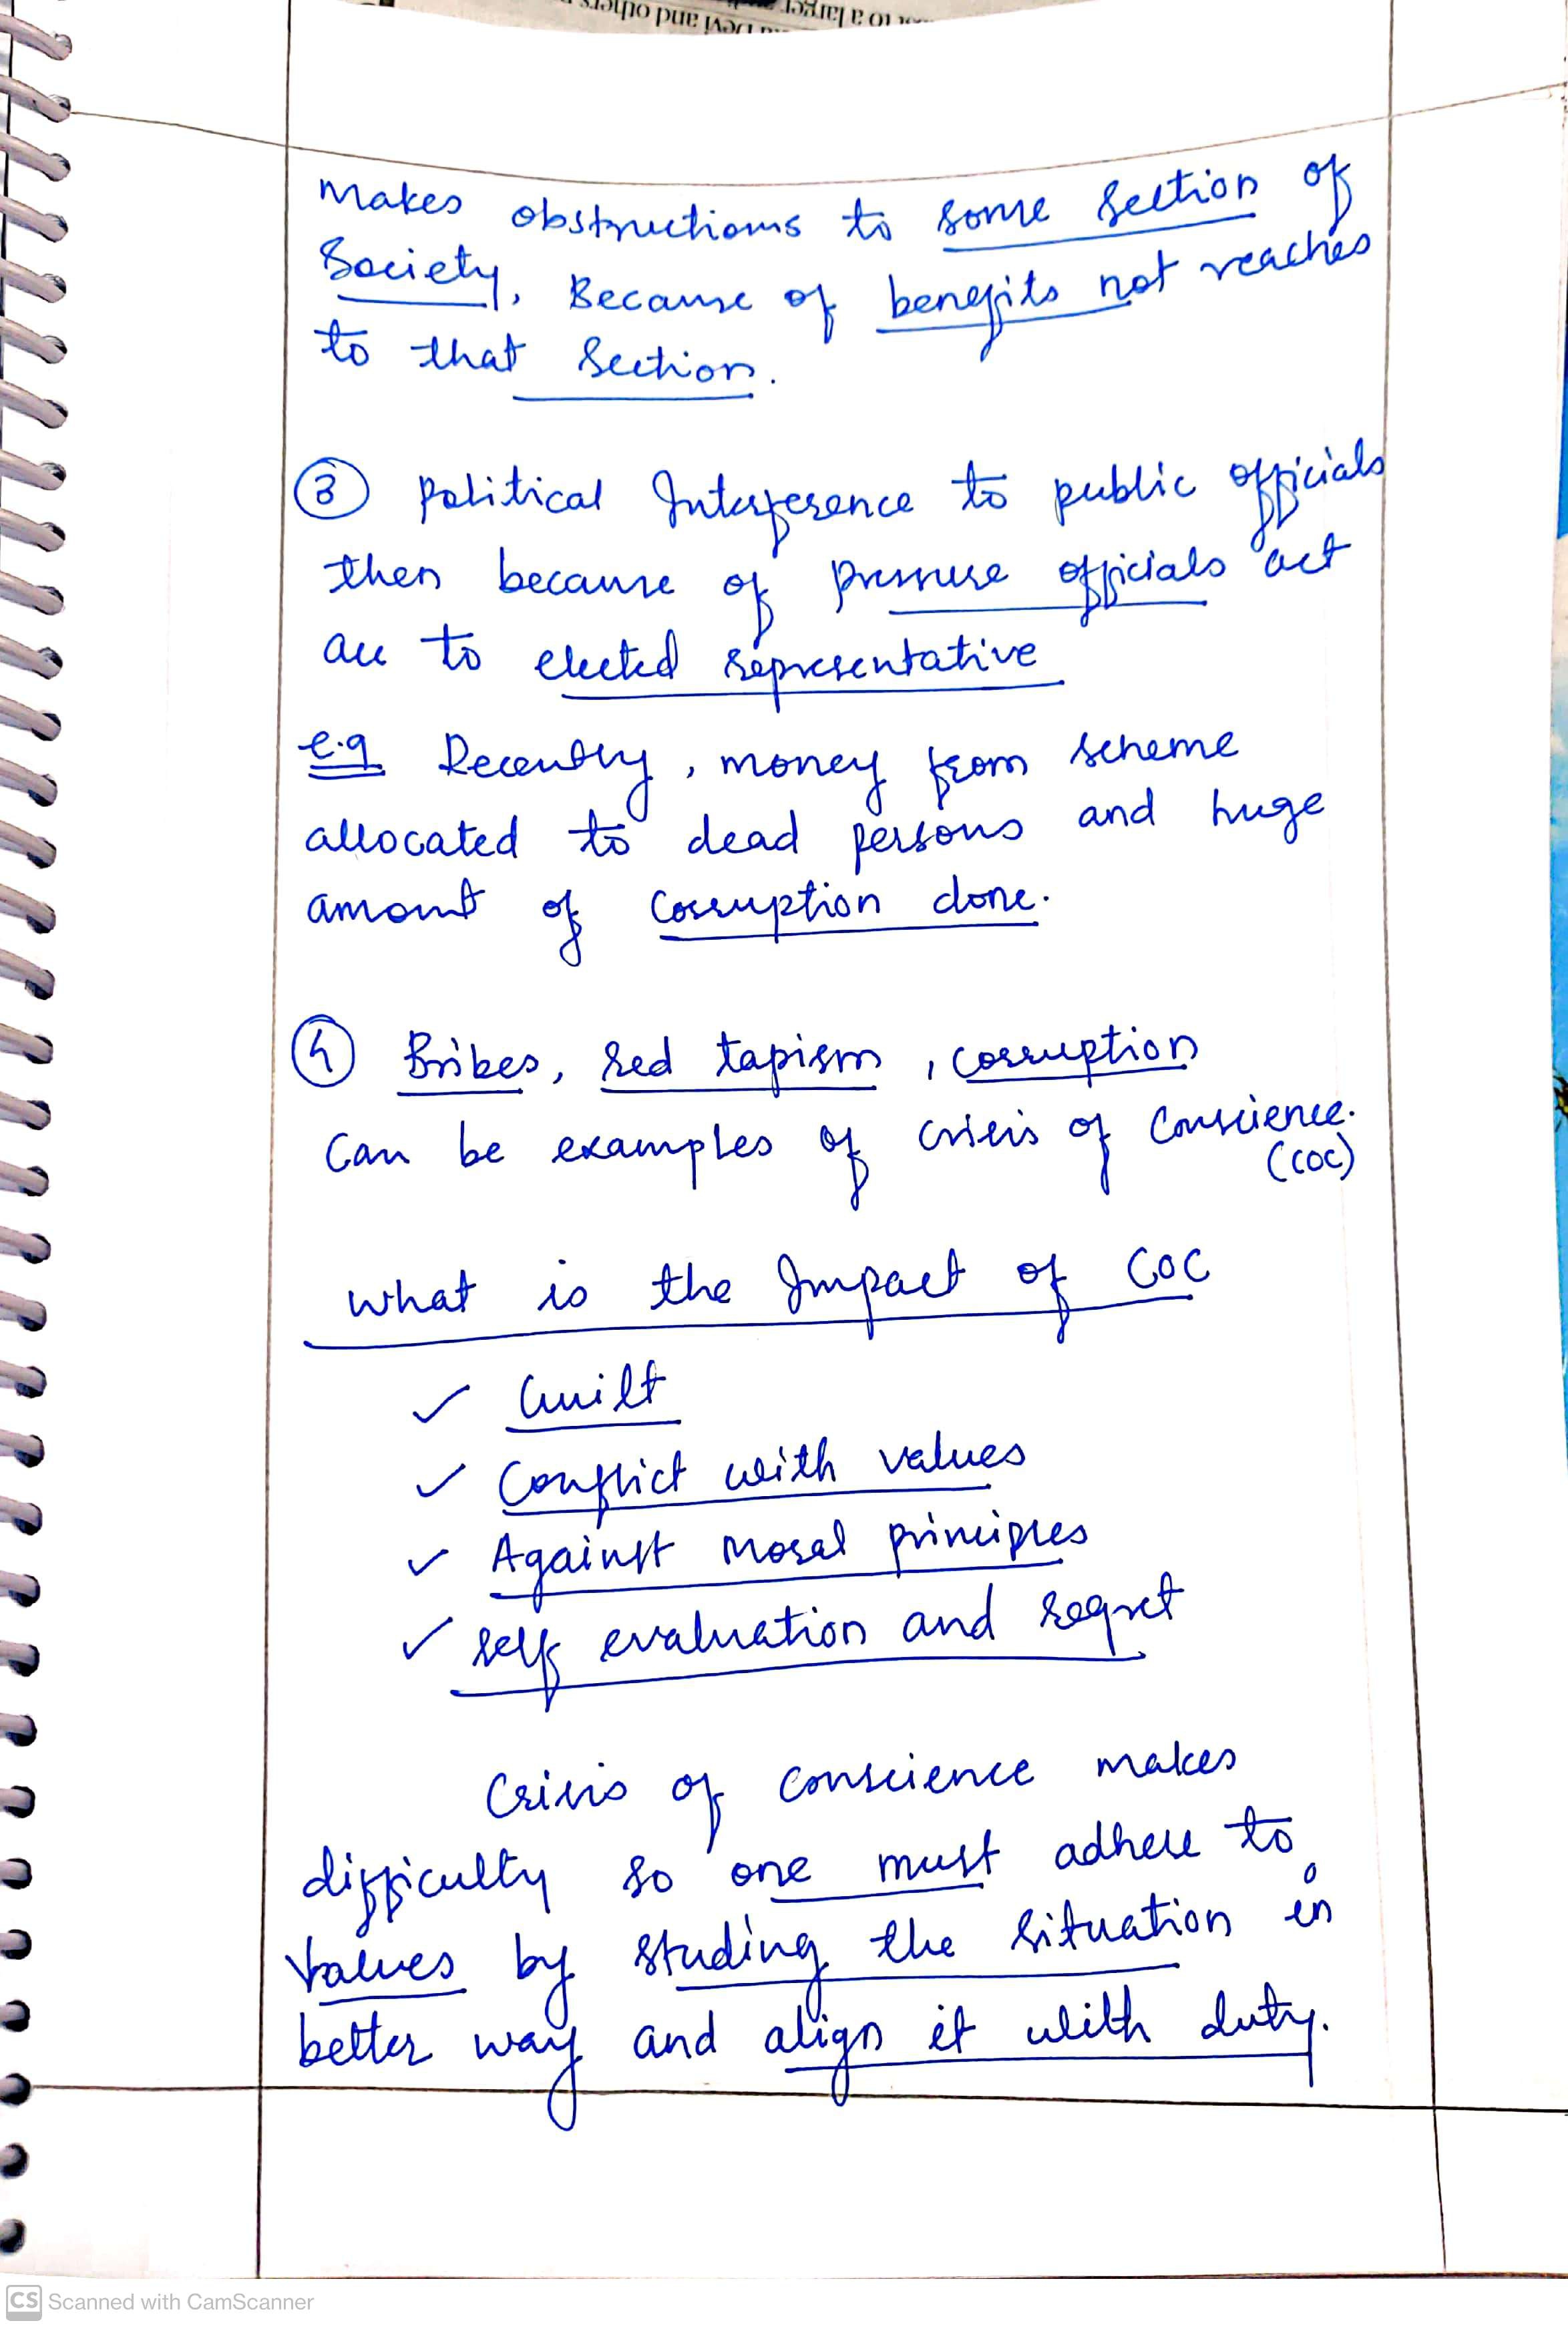 makes obstructions to some section of
Society. Because of benefits not reaches
to that Section.
③ Political Interference to public officials
then because of pressure officials act
acc to elected representative
e.g Recently, money from scheme
allocated to dead persons and huge
amount of corruption done.
④ Bribes, red tapism, corruption
can be examples of crisis of conscience.
(COC)
what is the Impact of COC
✓ Guilt
✓ Conflict with values
✓ Against moral principles
✓ self evaluation and regret
Crisis of conscience makes
difficulty so one must adhere to
values by studing the situation in
better way and align it with duty.
CS Scanned with CamScanner